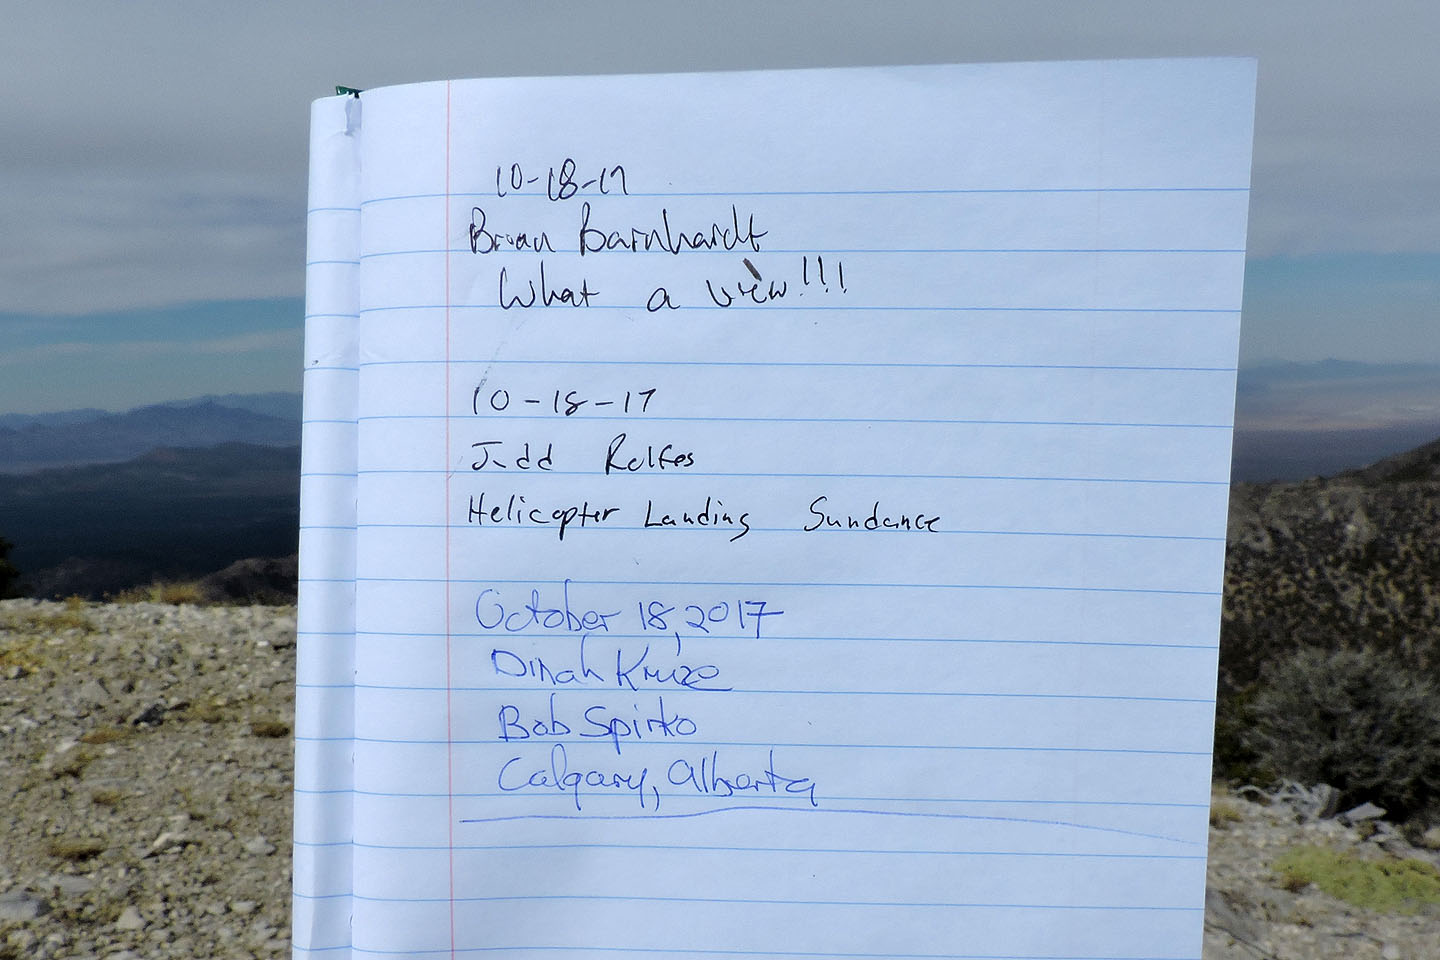 10-18-17
Brian Barnhardt
What a view!!!
10-18-17
Judd Rolfes
Helicopter Landing Sundance
October 18, 2017
Dinah Kruze
Bob Spirko
Calgary, Alberta